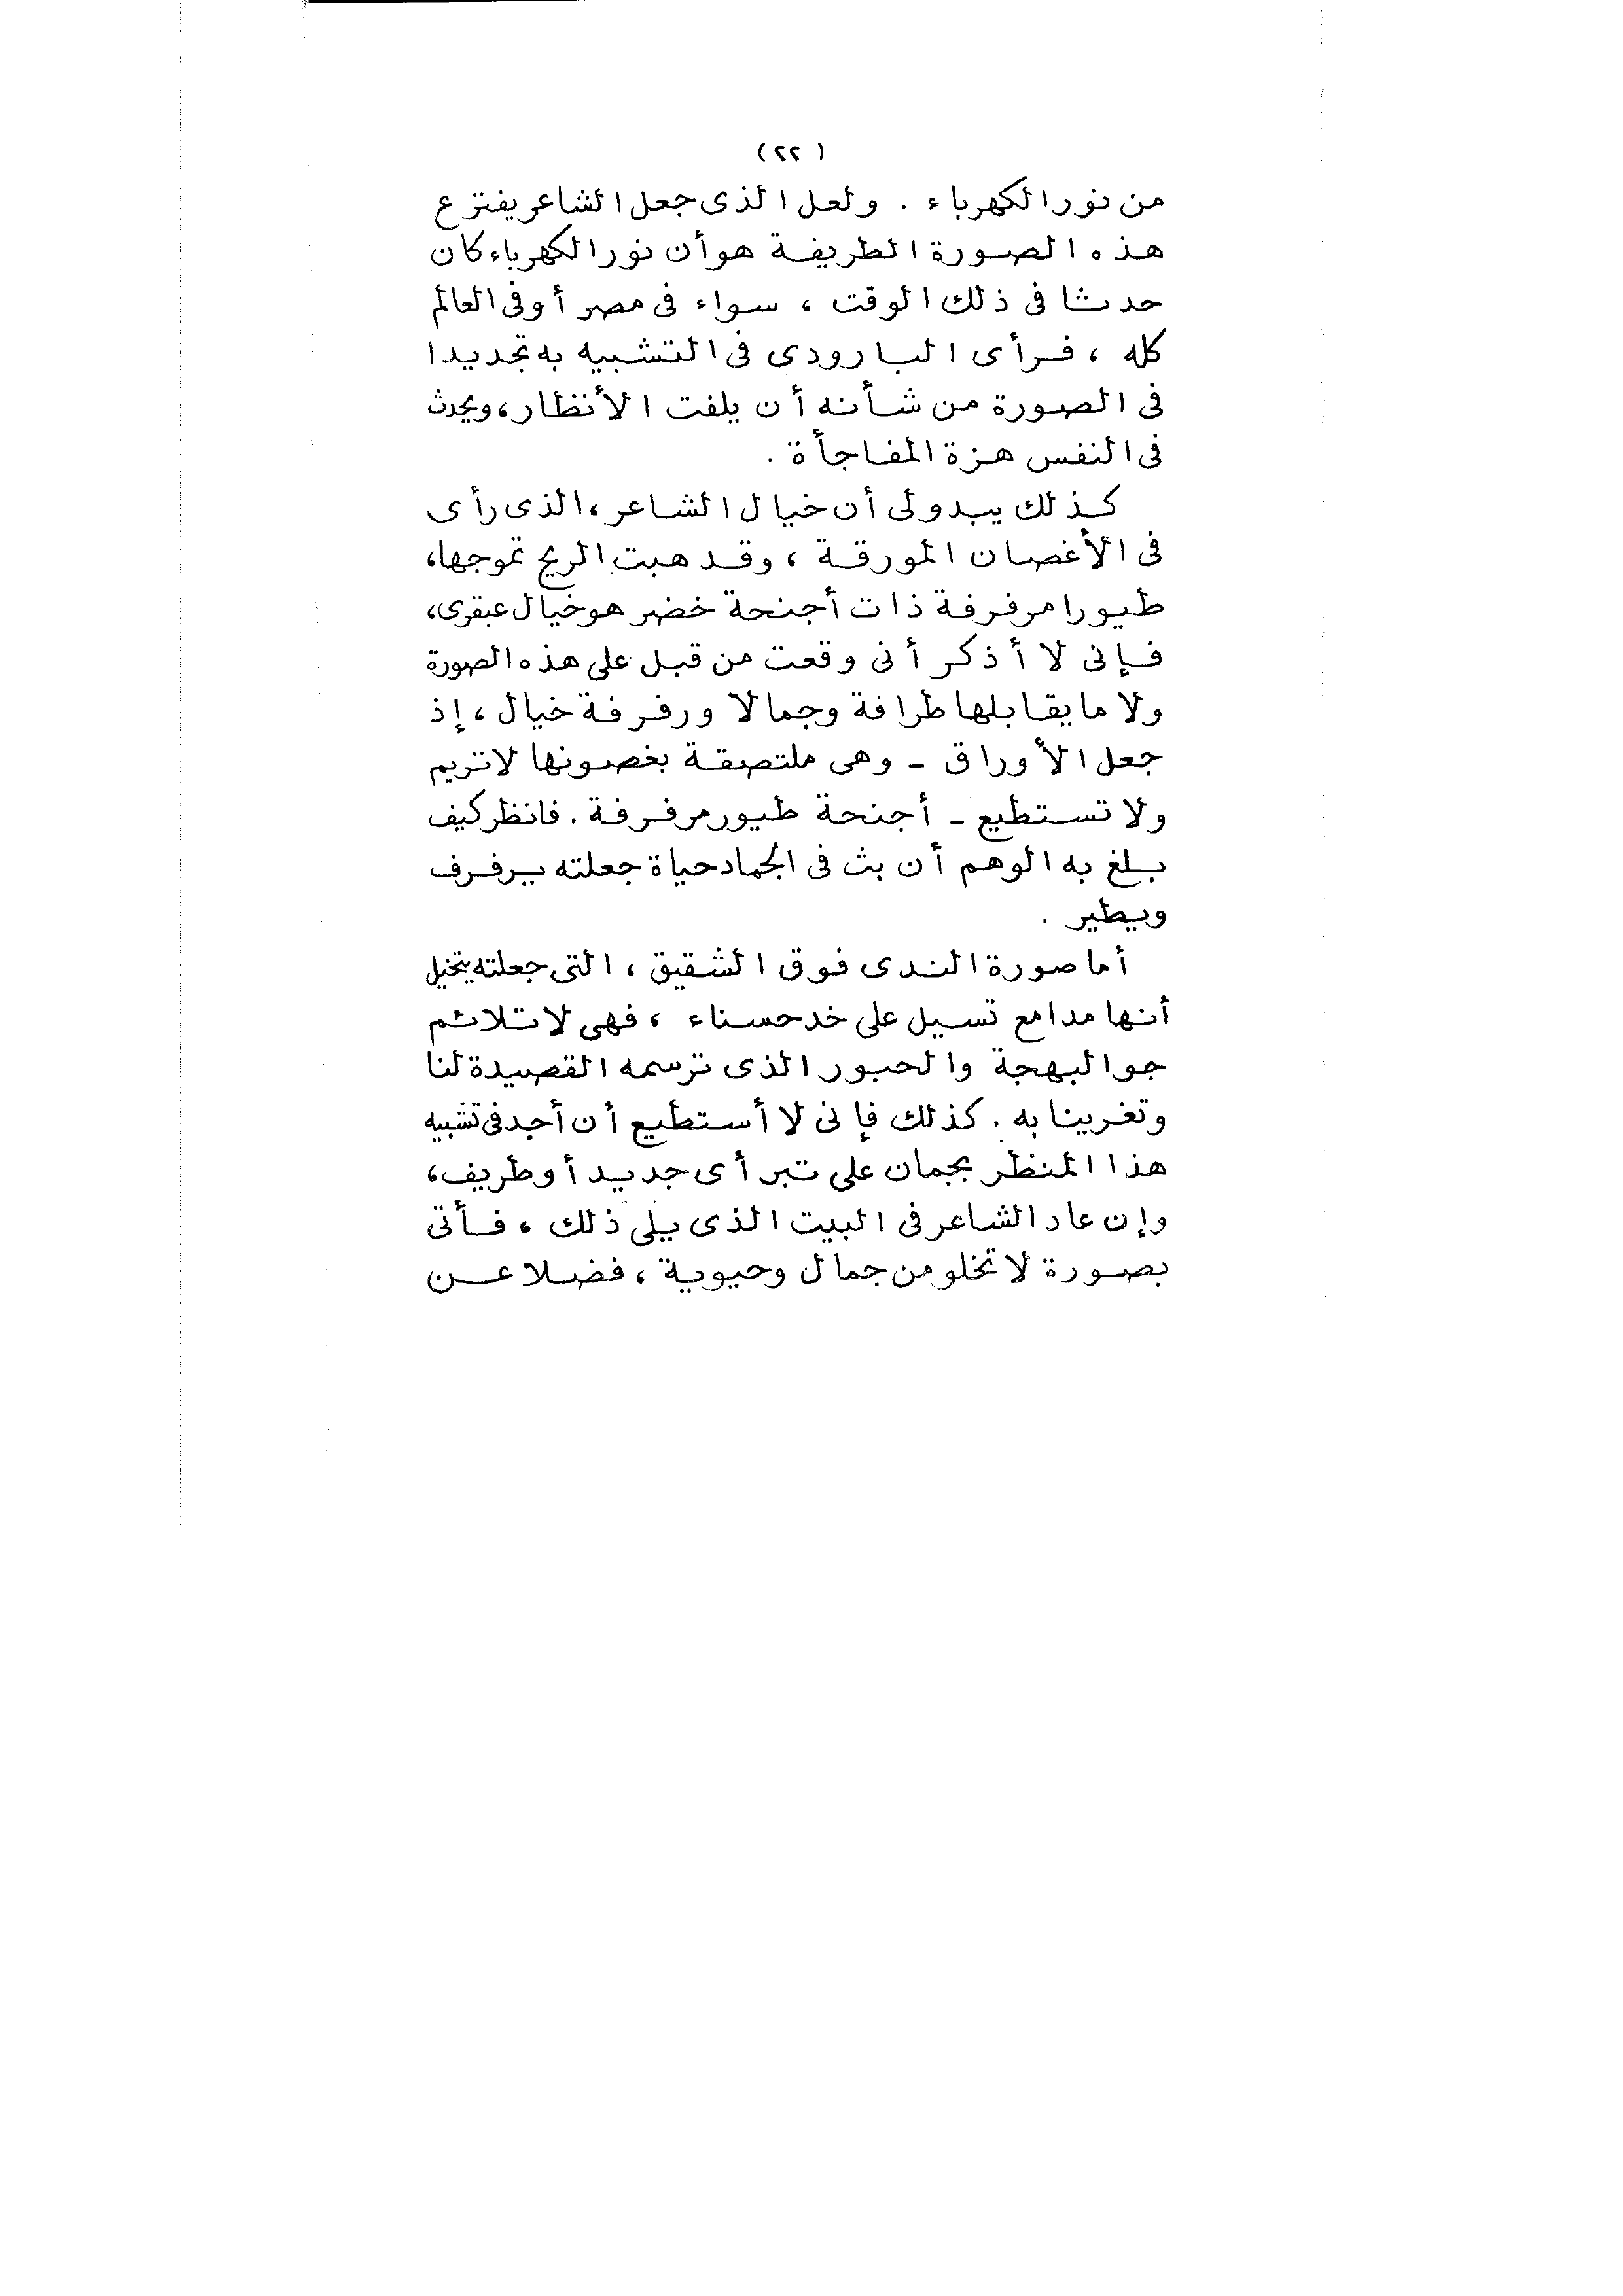 (٢٢)
من نور الكهرباء . ولعل الذى جعل الشاعر يفتزع
هذه الصورة الطريفة هو أن نور الكهرباء كان
حدثا فى ذلك الوقت ، سواء فى مصر أو فى العالم
كله ، فرأى البارودى فى التشبيه به تجديدا
فى الصورة من شأنه أن يلفت الأنظار ، ويحدث
فى النفس هزة المفاجأة .
كذلك يبدو لى أن خيال الشاعر ، الذى رأى
فى الأغصان المورقة ، وقد هبت الريح تموجها ،
طيورا مرفرفة ذات أجنحة خضر هو خيال عبقرى ،
فإنى لا أذكر أنى وقعت من قبل على هذه الصورة
ولا ما يقابلها طرافة وجمالا ورفرفة خيال ، إذ
جعل الأوراق - وهى ملتصقة بغصونها لا تريم
ولا تستطيع - أجنحة طيور مرفرفة . فانظر كيف
بلغ به الوهم أن بث فى الجماد حياة جعلته يرفرف
ويطير .
أما صورة الندى فوق الشقيق ، التى جعلته يتخيل
أنها مدامع تسيل على خد حسناء ، فهى لا تلائم
جو البهجة والحبور الذى ترسمه القصيدة لنا
وتغرينا به . كذلك فإنى لا أستطيع أن أجد فى تشبيه
هذا المنظر بجمان على تبر أى جديد أو طريف ،
وإن عاد الشاعر فى البيت الذى يلى ذلك ، فأتى
بصورة لا تخلو من جمال وحيوية ، فضلا عن